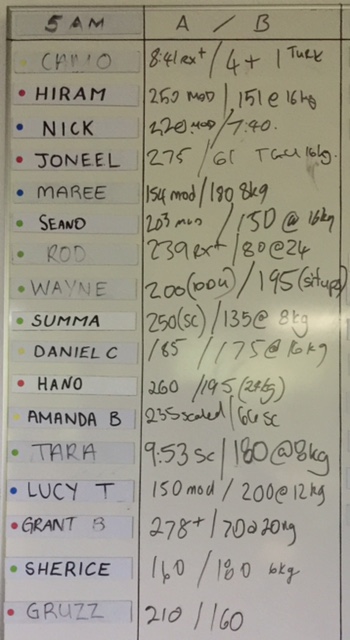 5 AM A / B
CAMO 8:41 Rx+ / 4 + 1 TURK
HIRAM 250 MOD / 151 @ 16kg
NICK 220 MOD / 7:40.
JONEEL 275 / 61 16kg.
MAREE 154 mod / 180 8kg
SEANO 203 / 150 @ 16kg
ROD 239 Rx+ / 80 @ 24
WAYNE 200 / 195 (situps)
SUMMA 250 (SC) / 135 @ 8kg
DANIEL C 185 / 175 @ 16kg
HANO 260 / 195
AMANDA B 235 scaled / 66 sc
TARA 9:53 SC / 180 @ 8kg
LUCY T 150 mod / 200 @ 12kg
GRANT B 278+ / 70 @ 20kg
SHERICE 160 / 180 6kg
GRUZZ 210 / 160